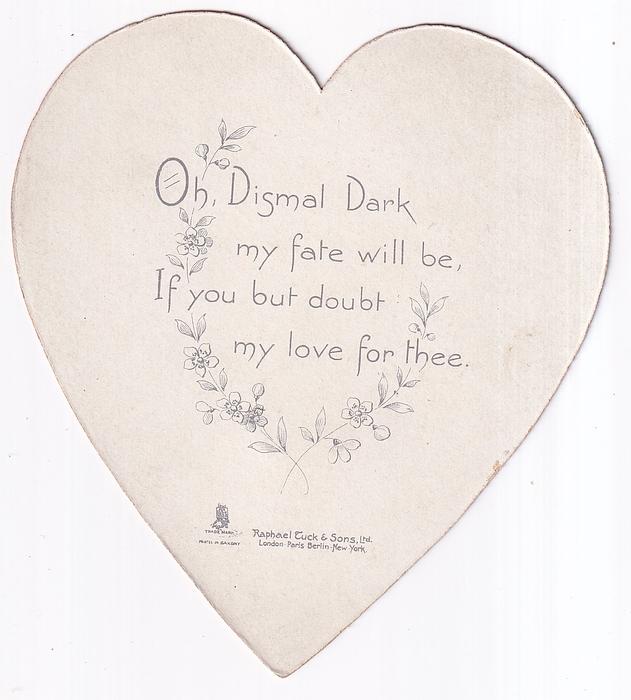 Oh, Dismal Dark
my fate will be,
If you but doubt
my love for thee.
TRADE MARK
PRINTED IN SAXONY
Raphael Tuck & Sons, Ltd.
London-Paris Berlin-New York.